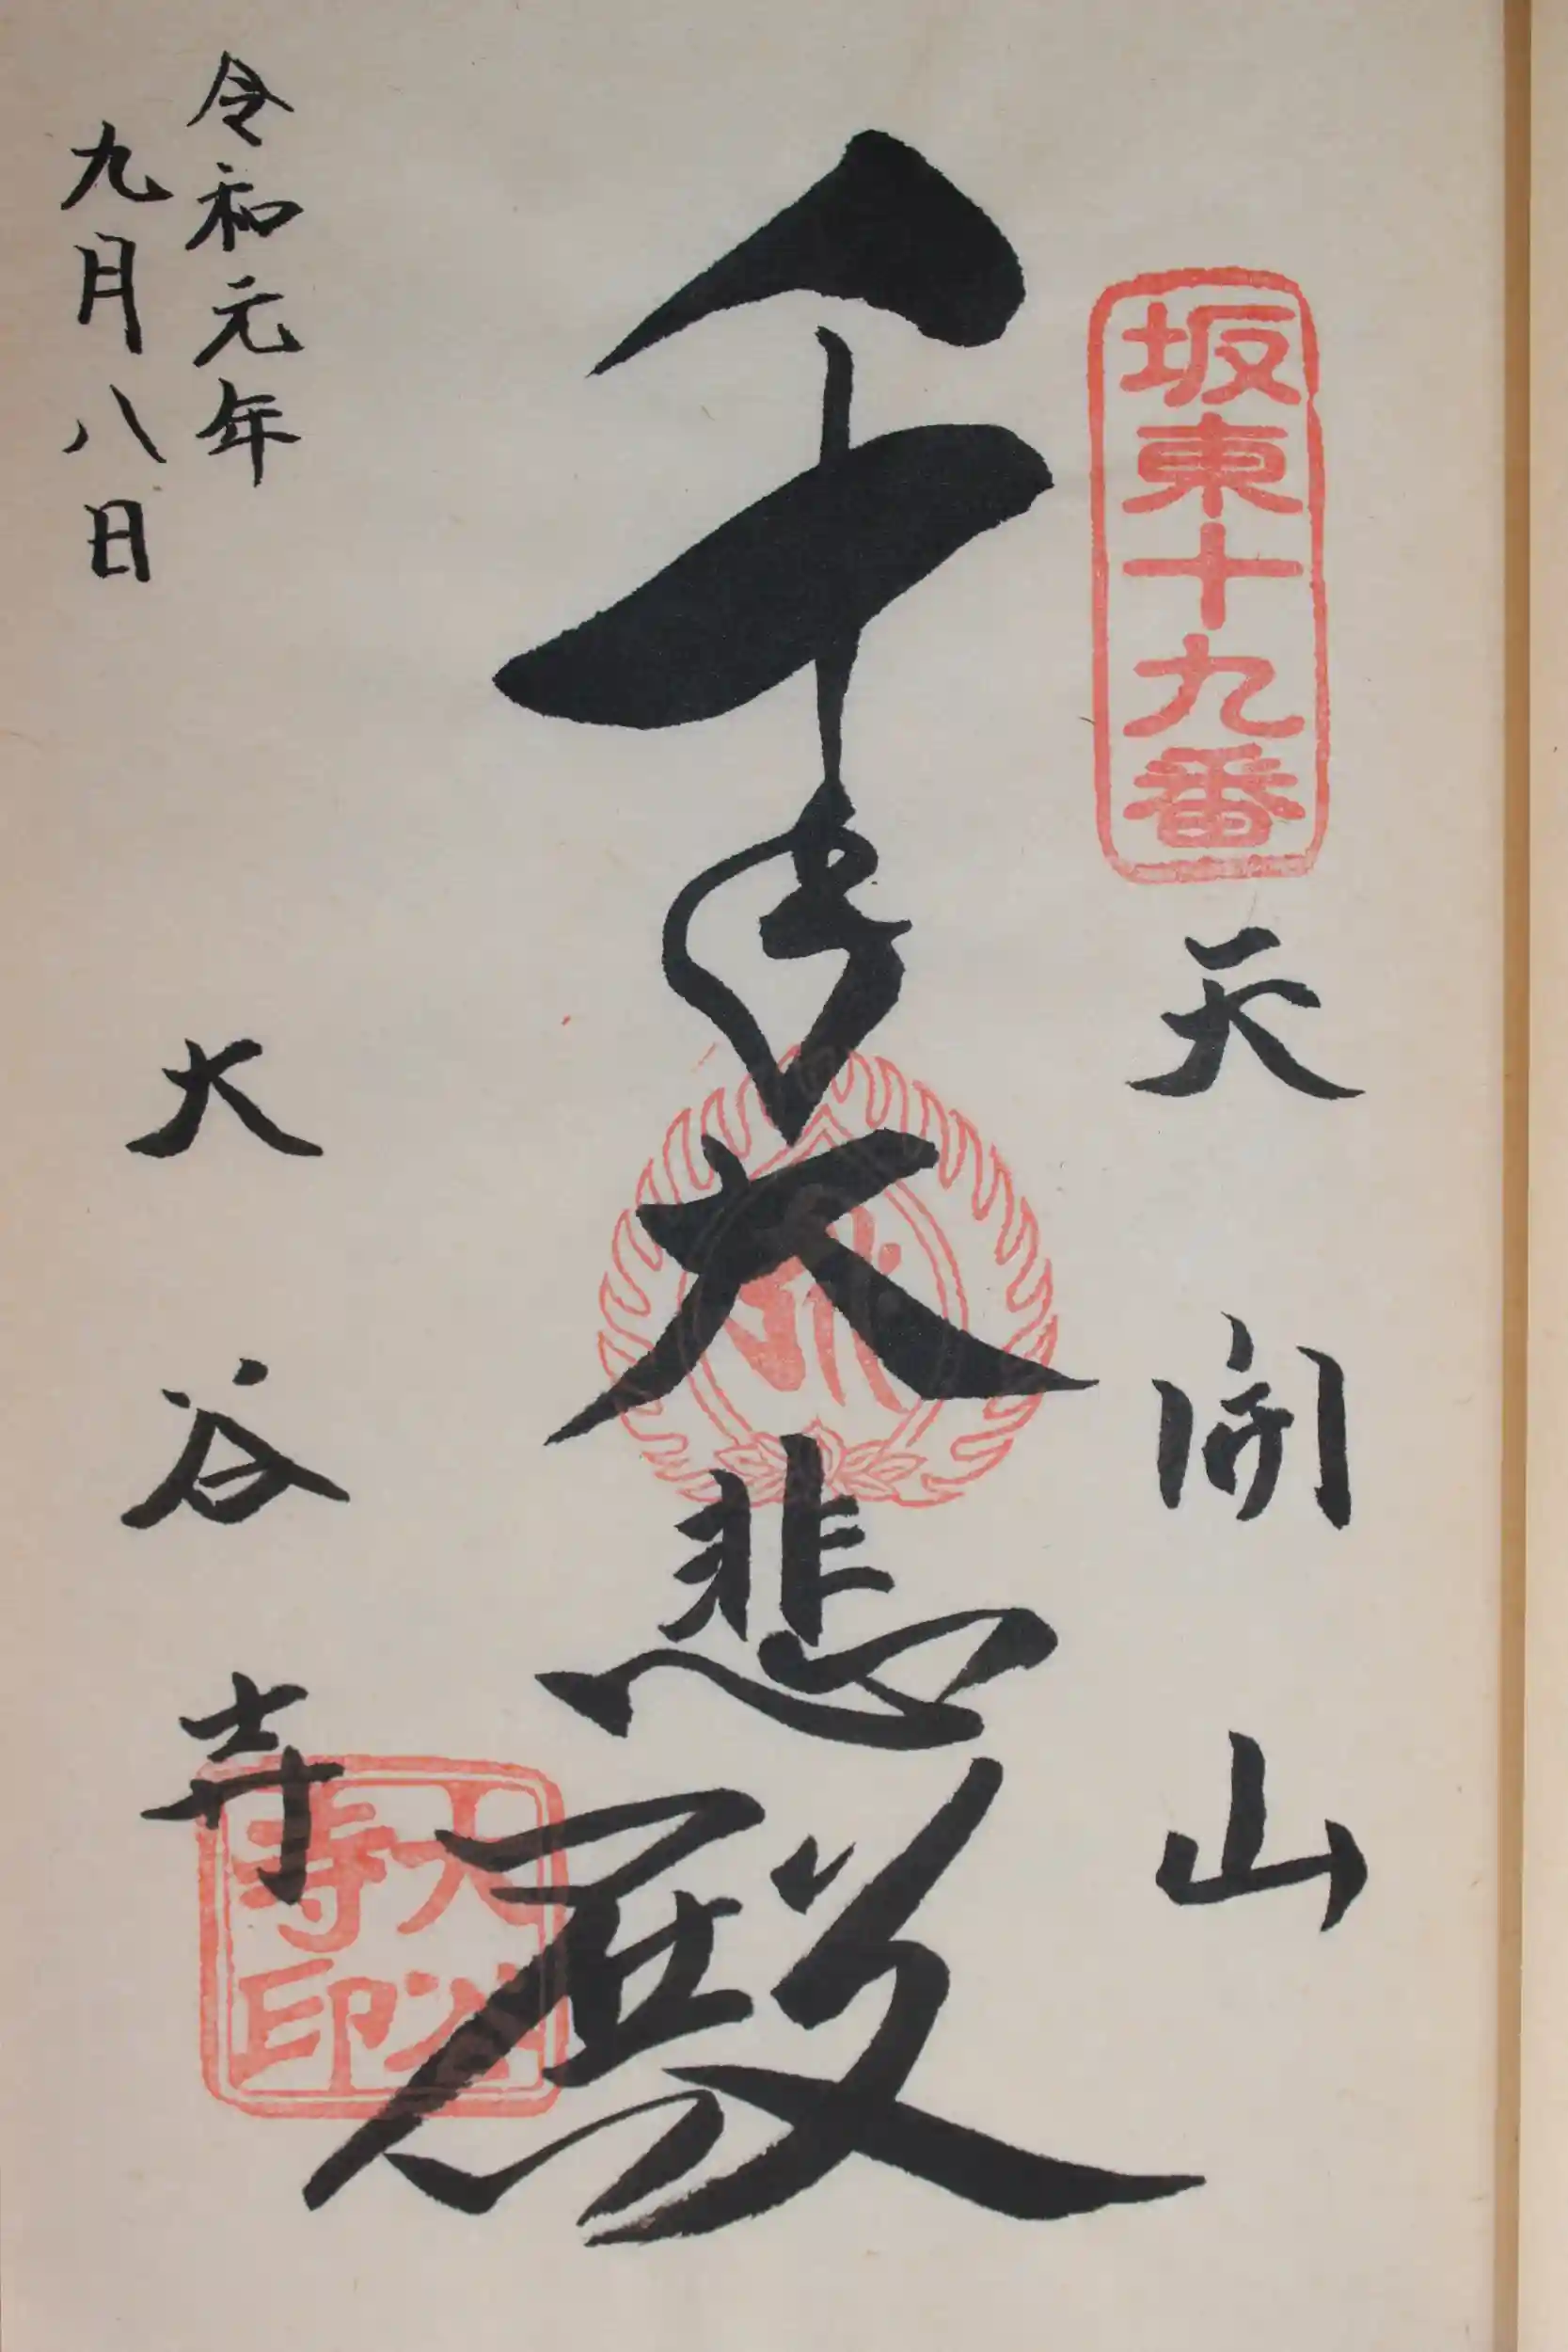 坂東十九番
天開山
千手大悲殿
大谷寺
大谷寺印
令和元年
九月八日